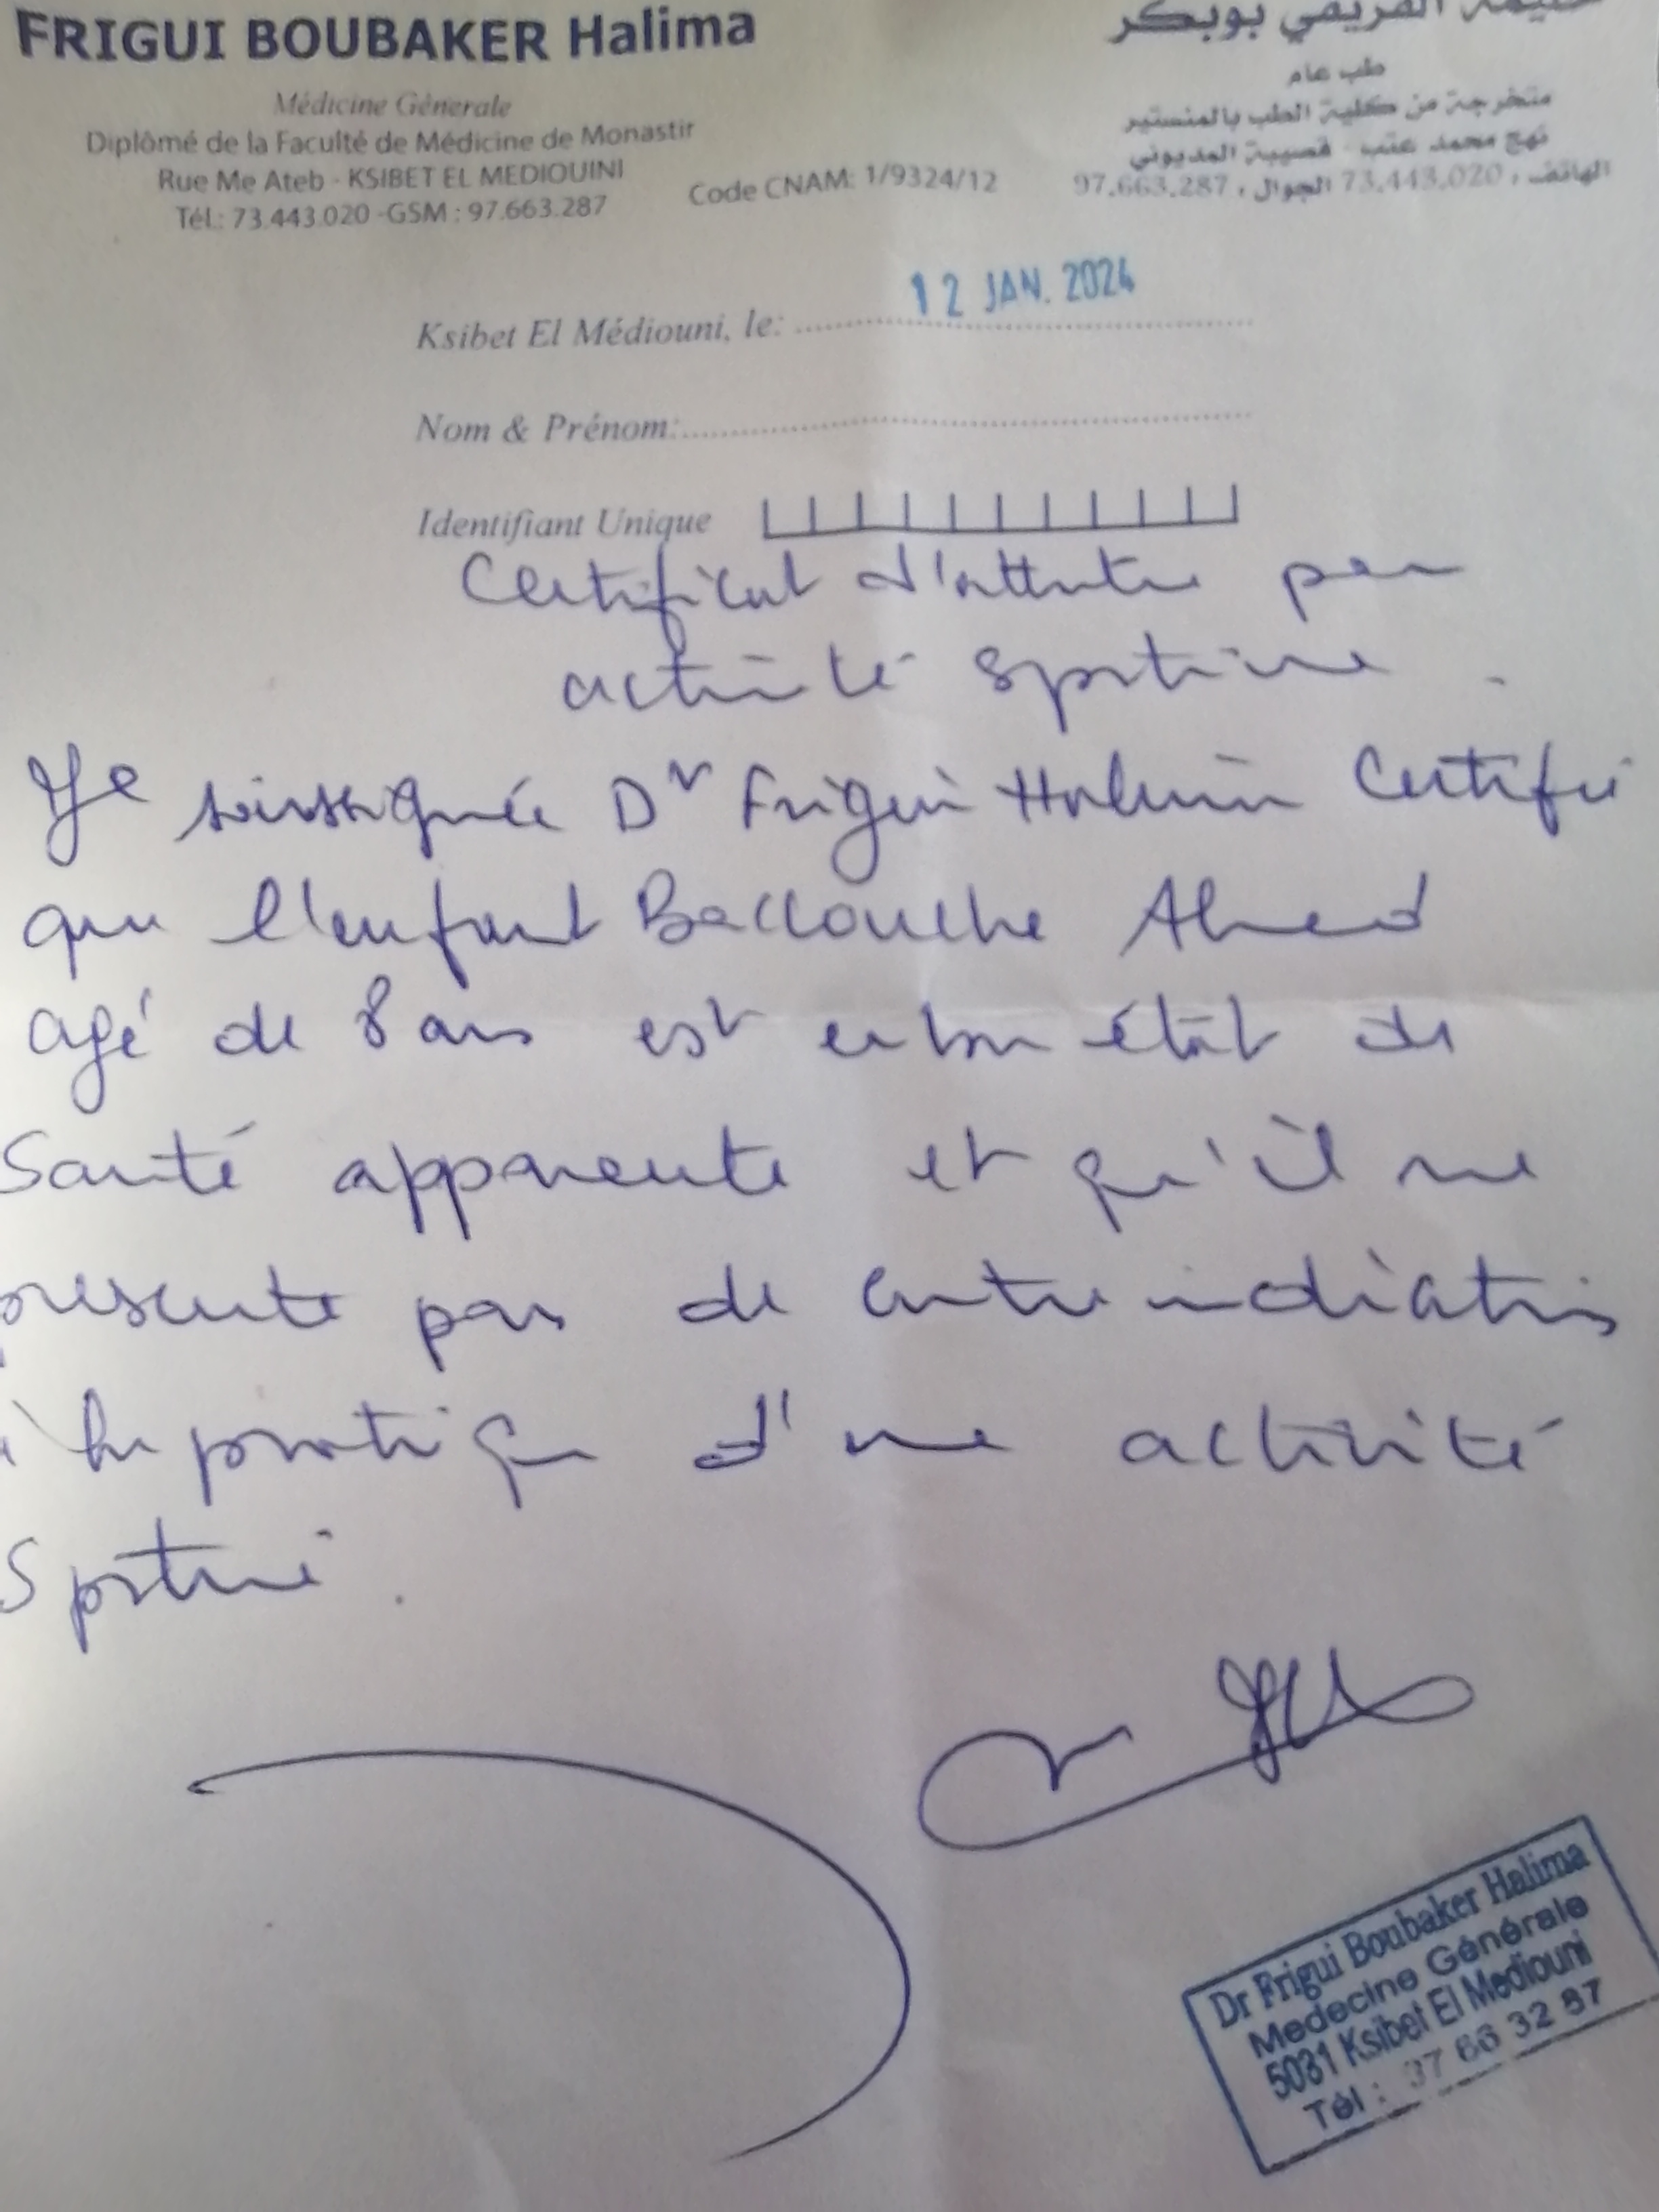 FRIGUI BOUBAKER Halima
Médicine Génerale
Diplômé de la Faculté de Médicine de Monastir
Rue Me Ateb - KSIBET EL MEDIOUINI
Tél.: 73.443.020 -GSM : 97.663.287
Code CNAM: 1/9324/12
حليمة الفريقي بوبكر
طب عام
متخرجة من كلية الطب بالمنستير
نهج محمد عتب - قصيبة المديوني
الهاتف : 73.443.020 الجوال : 97.663.287
12 JAN. 2024
Ksibet El Médiouni, le:
Nom & Prénom:
Identifiant Unique
Certificat d'attitude pour
activité sportive.
Je soussignée Dr Frigui Halima Certifie
que l'enfant Baccouche Ahmed
agé de 8 ans est en bon état de
Santé apparente et qu'il ne
présente pas de contre indications
à la pratique d'une activité
Sportive.
Dr Frigui Boubaker Halima
Medecine Générale
5031 Ksibet El Mediouni
Tél : 97 66 32 87